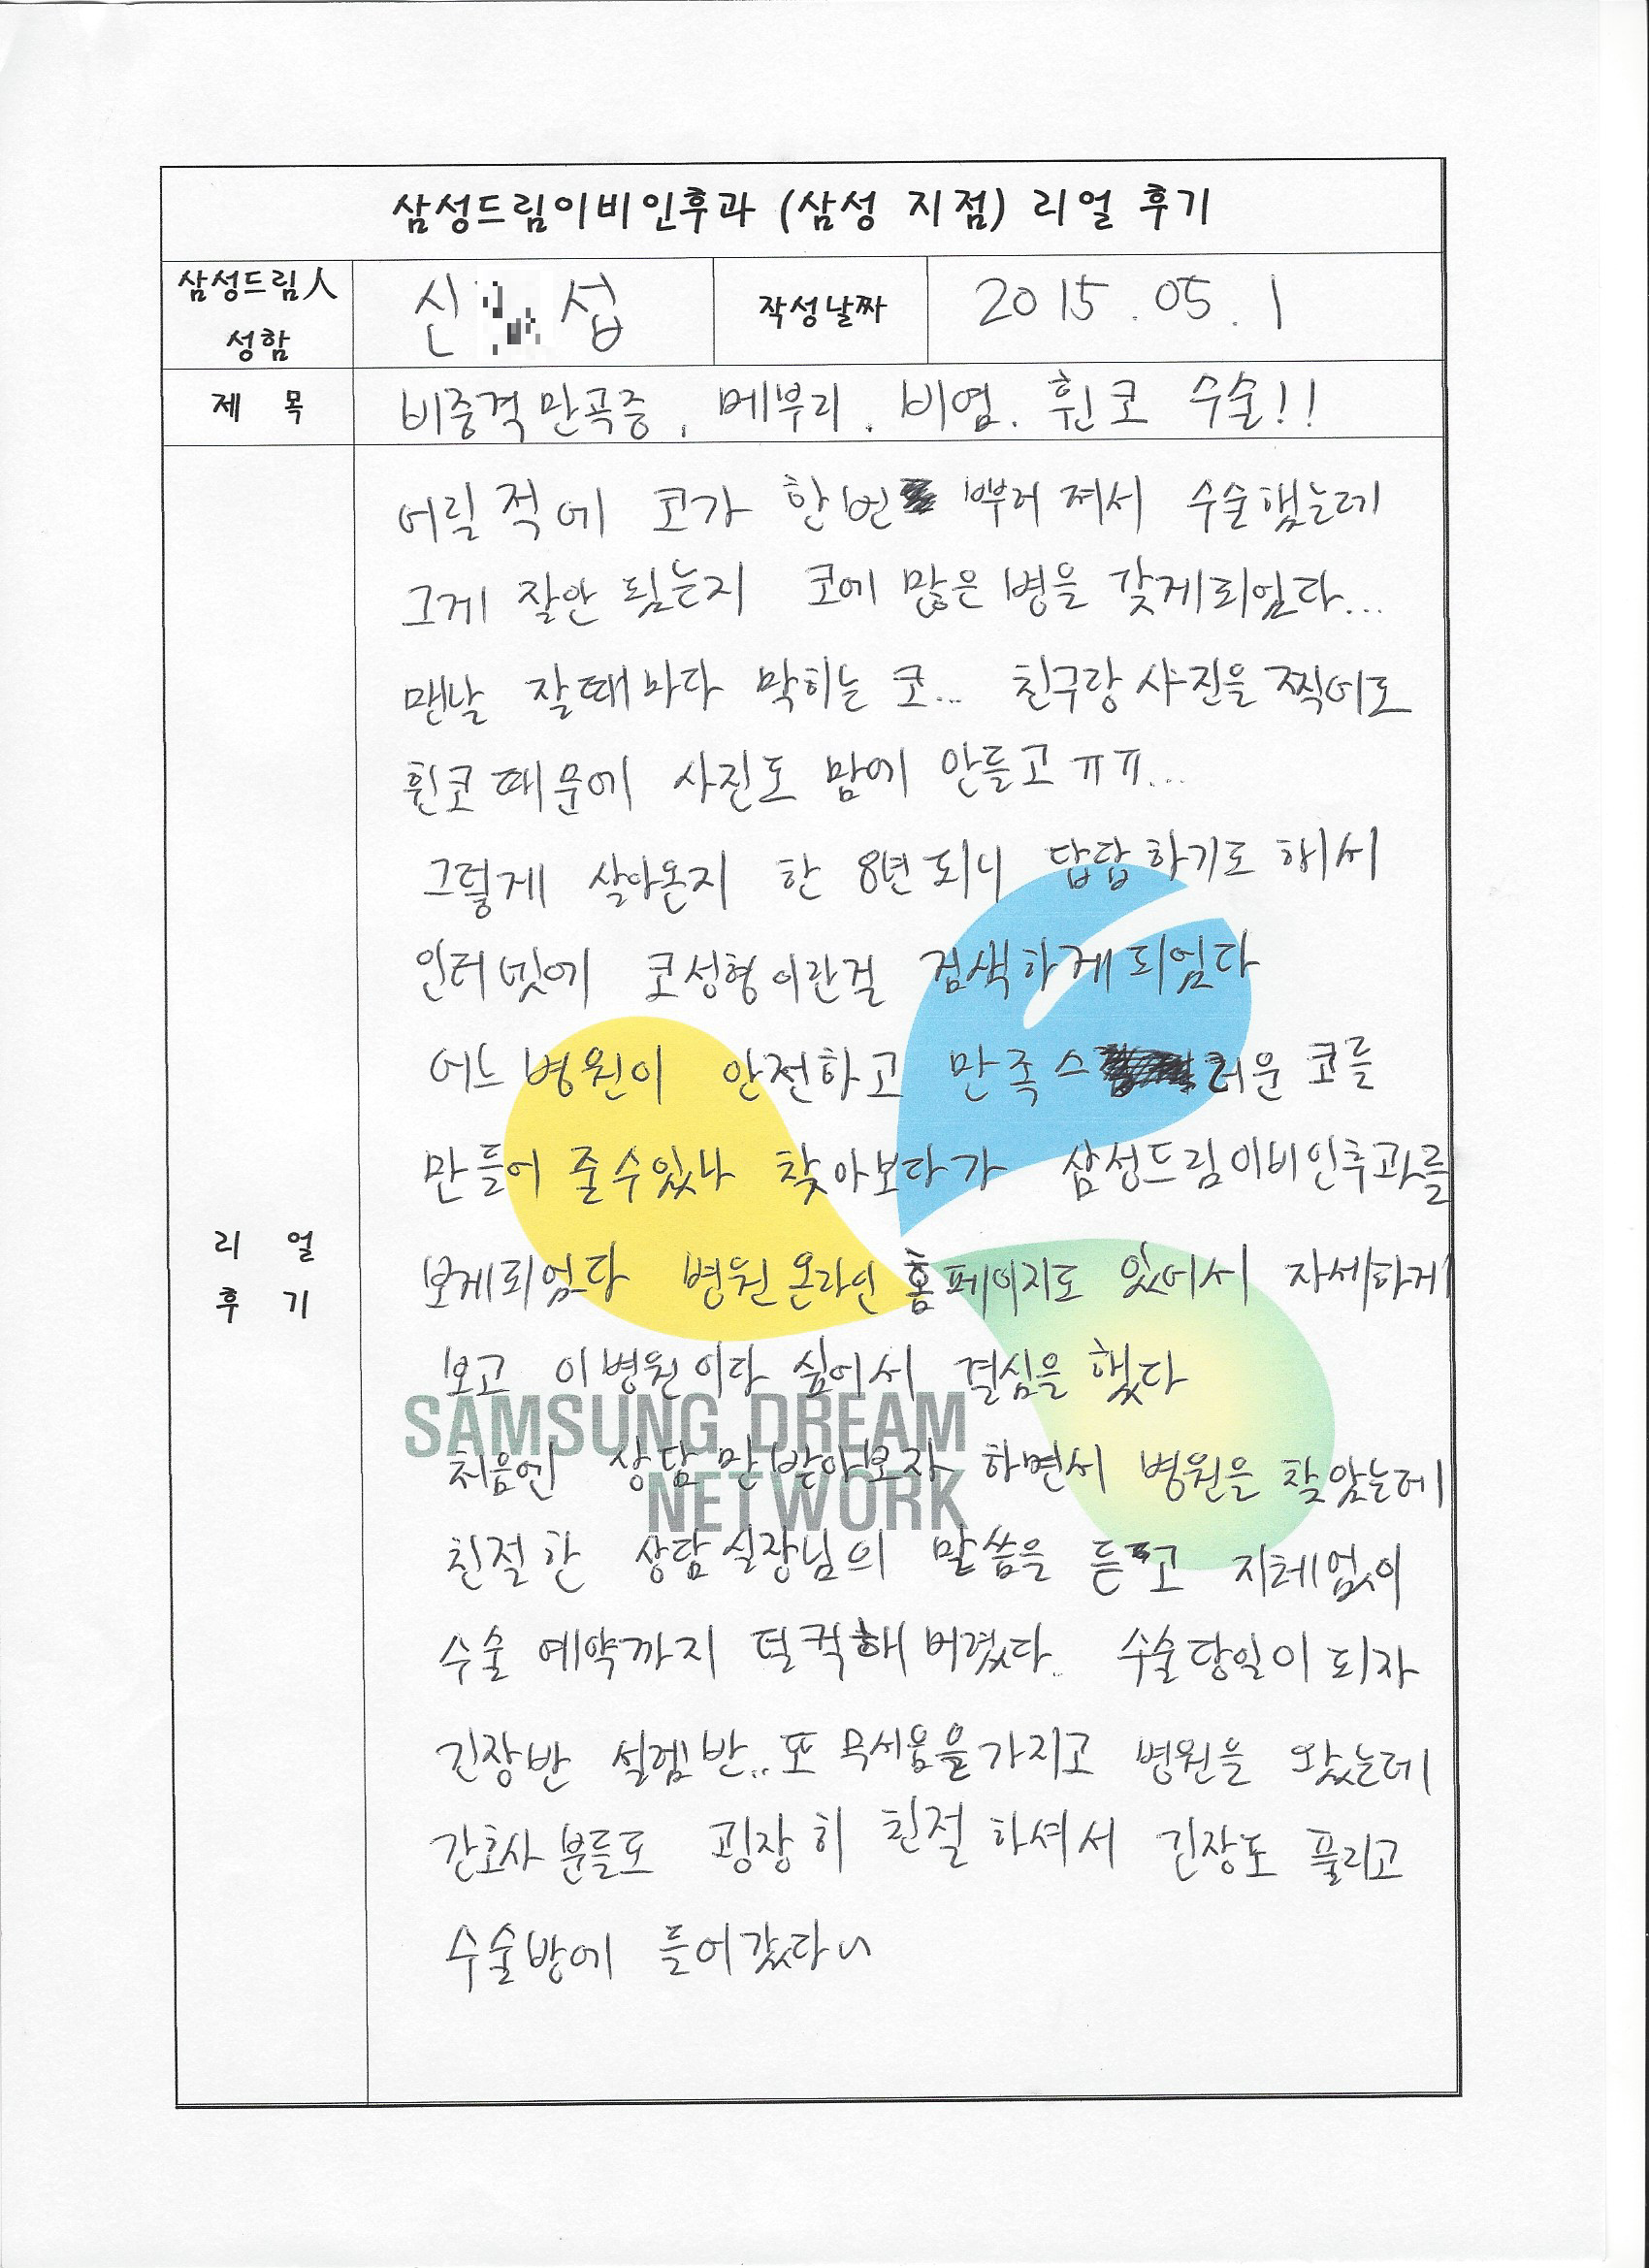 삼성드림이비인후과 (삼성 지점) 리얼 후기
삼성드림人
성함
신 섭
작성날짜
2015.05.1
제 목
비중격만곡증, 메부리. 비염. 휜코 수술!!
어릴적에 코가 한번 뿌러져서 수술했는데
그게 잘안 됬는지 코에 많은병을 갖게되었다...
맨날 잘때마다 막히는 코... 친구랑사진을찍어도
휜코때문에 사진도 맘에 안들고ㅠㅠ...
그렇게 살아온지 한 8년되니 답답하기도 해서
인터넷에 코성형이란걸 검색하게되었다
어느병원이 안전하고 만족스러운 코를
만들어 줄수있나 찾아보다가 삼성드림이비인후과를
보게되었다 병원온라인홈페이지도 있어서 자세하게
보고 이병원이다 싶어서 결심을 했다
SAMSUNG DREAM
NETWORK
처음엔 상담만받아보자 하면서 병원을 찾았는데
친절한 상담실장님의 말씀을 듣고 지체없이
수술 예약까지 덜컥해버렸다.. 수술당일이되자
긴장반 설렘반.. 또 무서움을가지고 병원을 왔는데
간호사분들도 굉장히 친절하셔서 긴장도 풀리고
수술방에 들어갔다~
리 얼
후 기